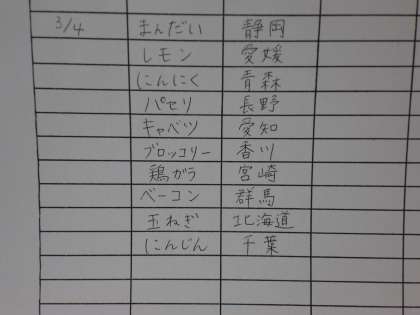 3/4 まんだい 静岡
レモン 愛媛
にんにく 青森
パセリ 長野
キャベツ 愛知
ブロッコリー 香川
鶏ガラ 宮崎
ベーコン 群馬
玉ねぎ 北海道
にんじん 千葉